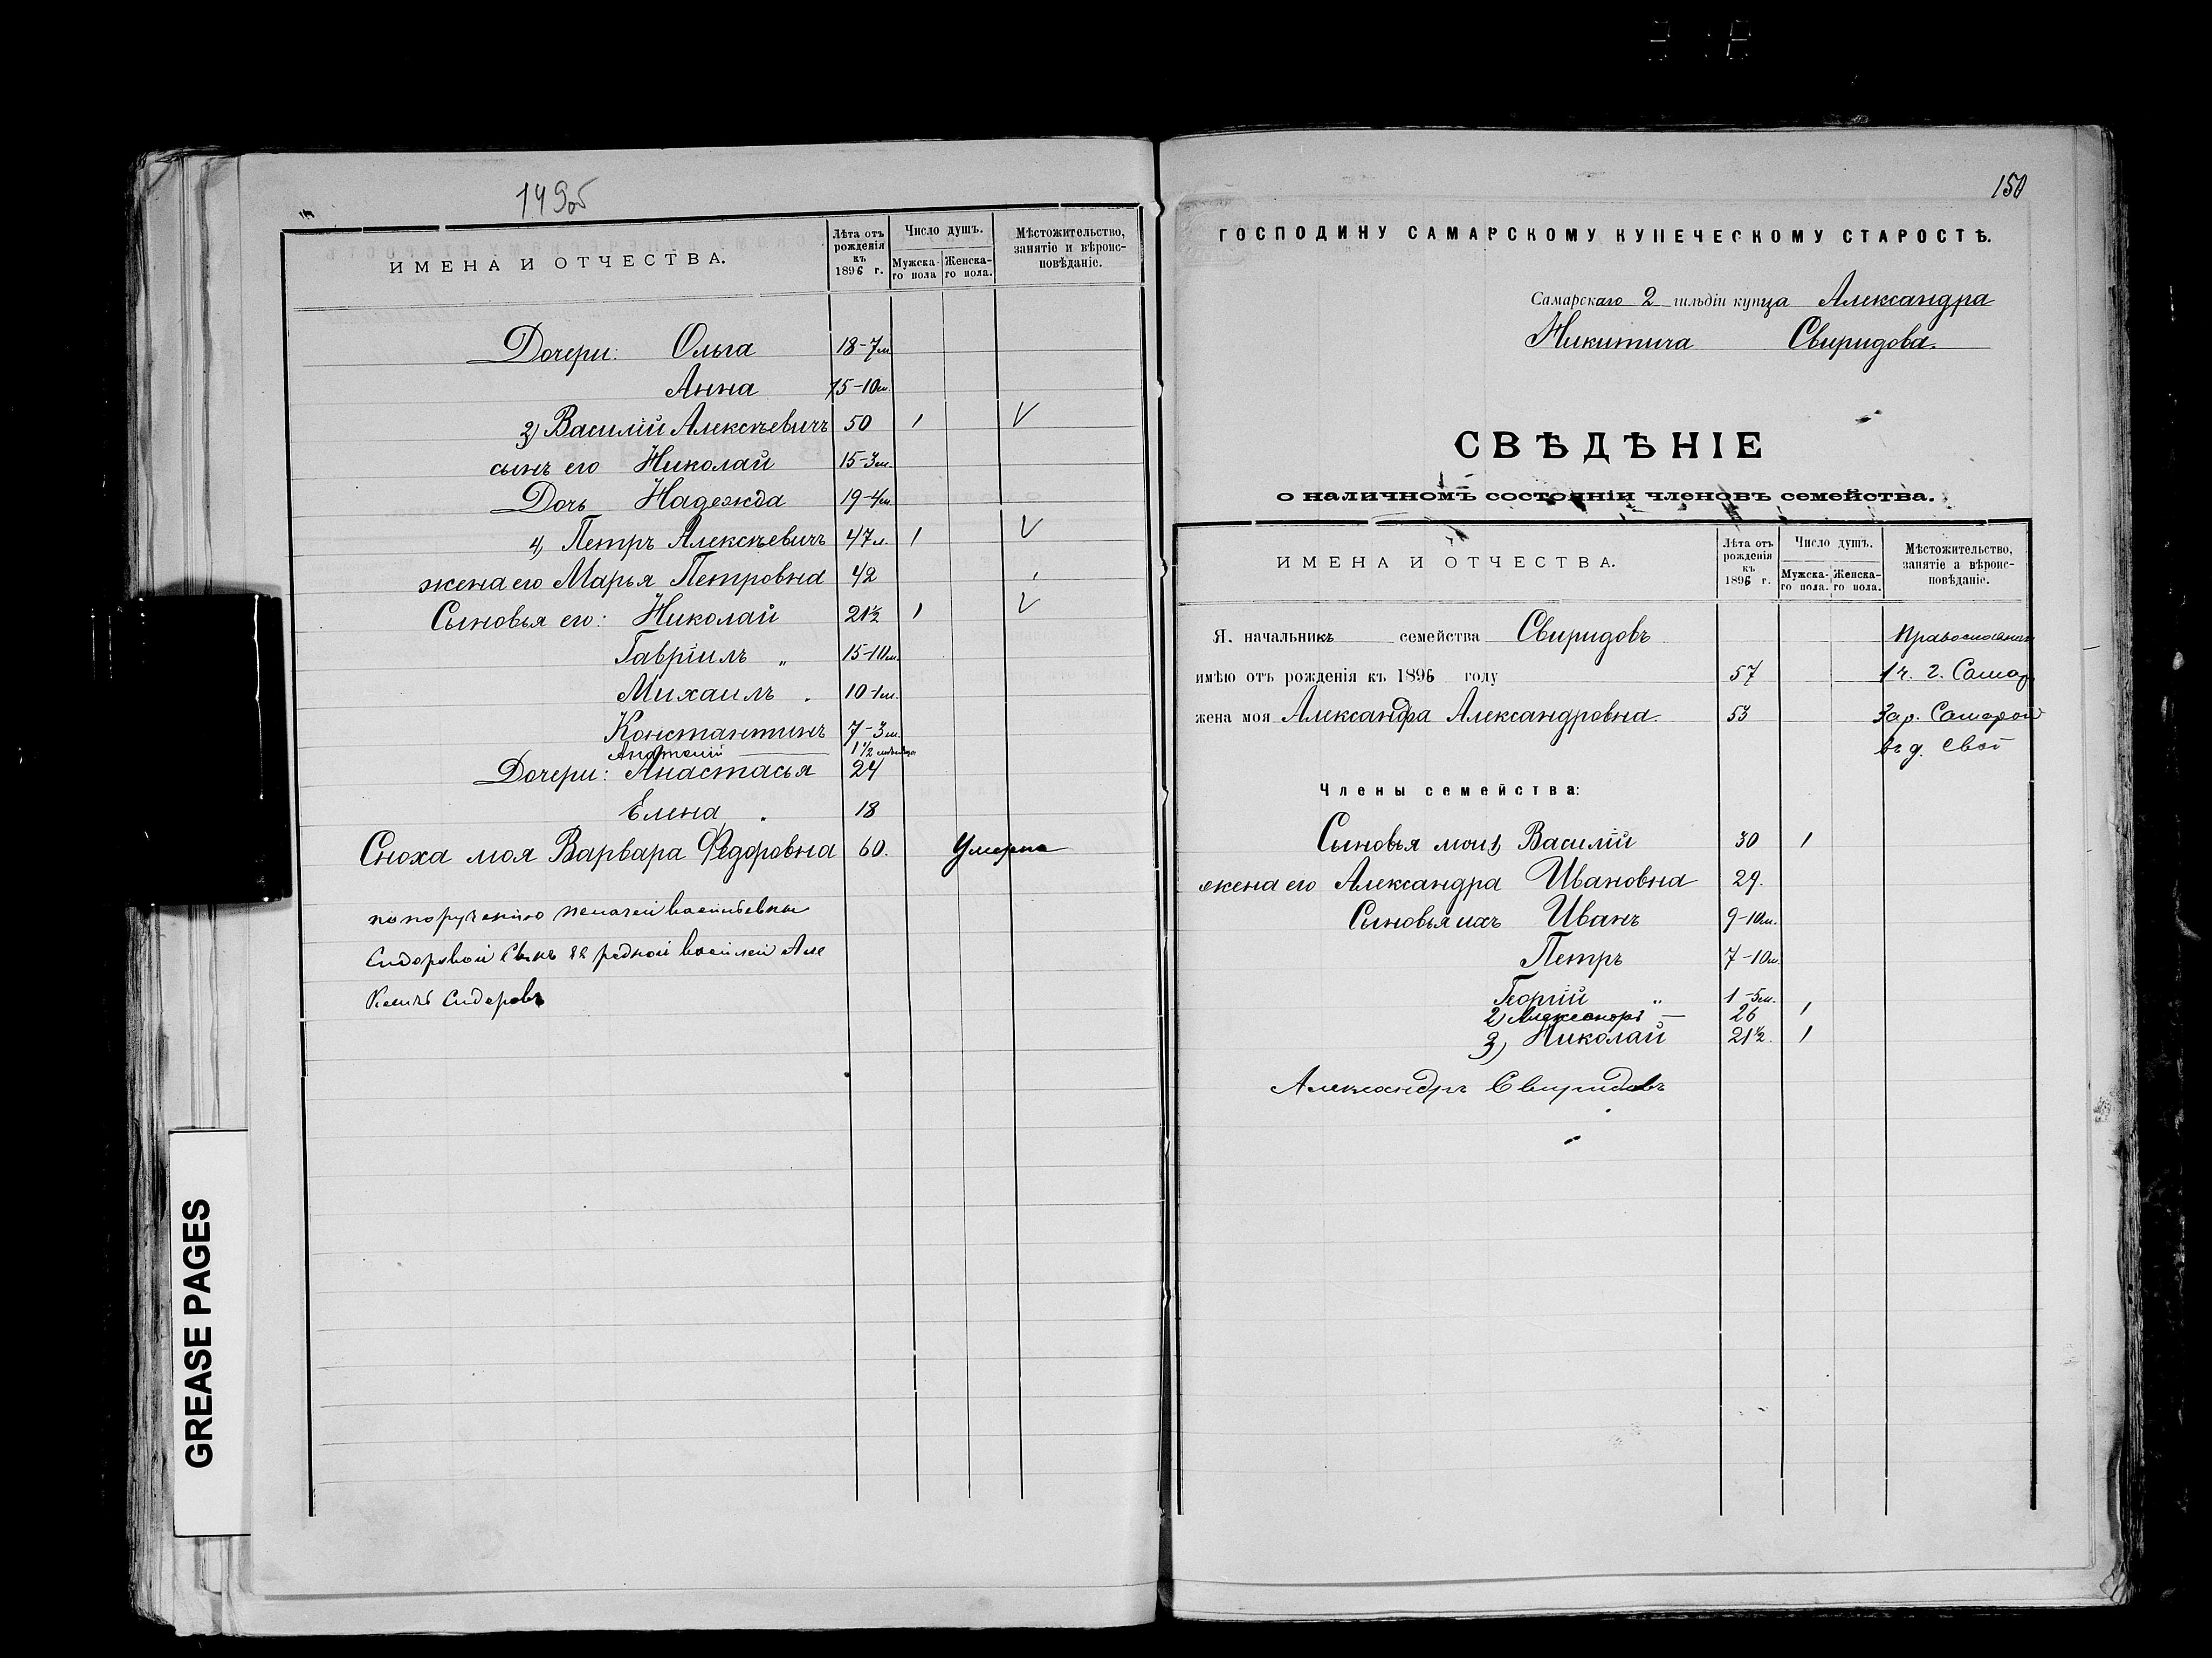 149об
ИМЕНА И ОТЧЕСТВА.
Лѣта отъ рожденія къ 1896 г.
Число душъ.
Мужска-го пола
Женска-го пола.
Мѣстожительство, занятіе и вѣроис-повѣданіе.
Дочери: Ольга 18-7м
Анна 15-10м.
3) Василій Алексѣевичъ 50 1 V
сынъ его Николай 15-3м.
Дочь Надежда 19-4м.
4) Петръ Алексѣевичъ 47л. 1 V
жена его Марья Петровна 42
Сыновья его: Николай 21½ 1 V
Гавріилъ " 15-10м.
Михаилъ " 10-1м.
Константинъ 7-3м.
Анатолій — 1½ мѣсяца
Дочери: Анастасья 24
Елена " 18
Сноха моя Варвара Ѳедоровна 60. Умерла
по порученію Пелагеи Васильевны
Сидоровой Сынъ ея родной Василей Але
Ксеичъ Сидоровъ
GREASE PAGES
150
ГОСПОДИНУ САМАРСКОМУ КУПЕЧЕСКОМУ СТАРОСТѢ.
Самарскаго 2 гильдіи купца Александра
Никитича Свиридова.
СВѢДѢНІЕ
о наличномъ состояніи членовъ семейства.
ИМЕНА И ОТЧЕСТВА.
Лѣта отъ рожденія къ 1896 г.
Число душъ.
Мужска-го пола.
Женска-го пола.
Мѣстожительство, занятіе а вѣроис-повѣданіе.
Я. начальникъ семейства Свиридовъ
имѣю отъ рожденія къ 1896 году 57 1 ч. г. Самар
жена моя Александра Александровна 53 За р. Самарой
въ д. Свой
Члены семейства:
Сыновья мои 1) Василій 30 1
жена его Александра Ивановна 29.
Сыновья ихъ Иванъ 9-10м.
Петръ 7-10м.
Георгій " 1-5м.
2) Александръ — 26 1
3) Николай 21½. 1
Александръ Свиридовъ